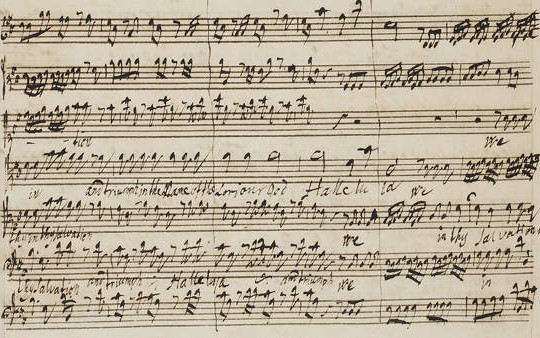 tion we
in and triumph in the Name of the Lord our God Hallelu ia we
thy salvation we in thy Salvation
thy Salvation and triumph Halleluia and triumph we in